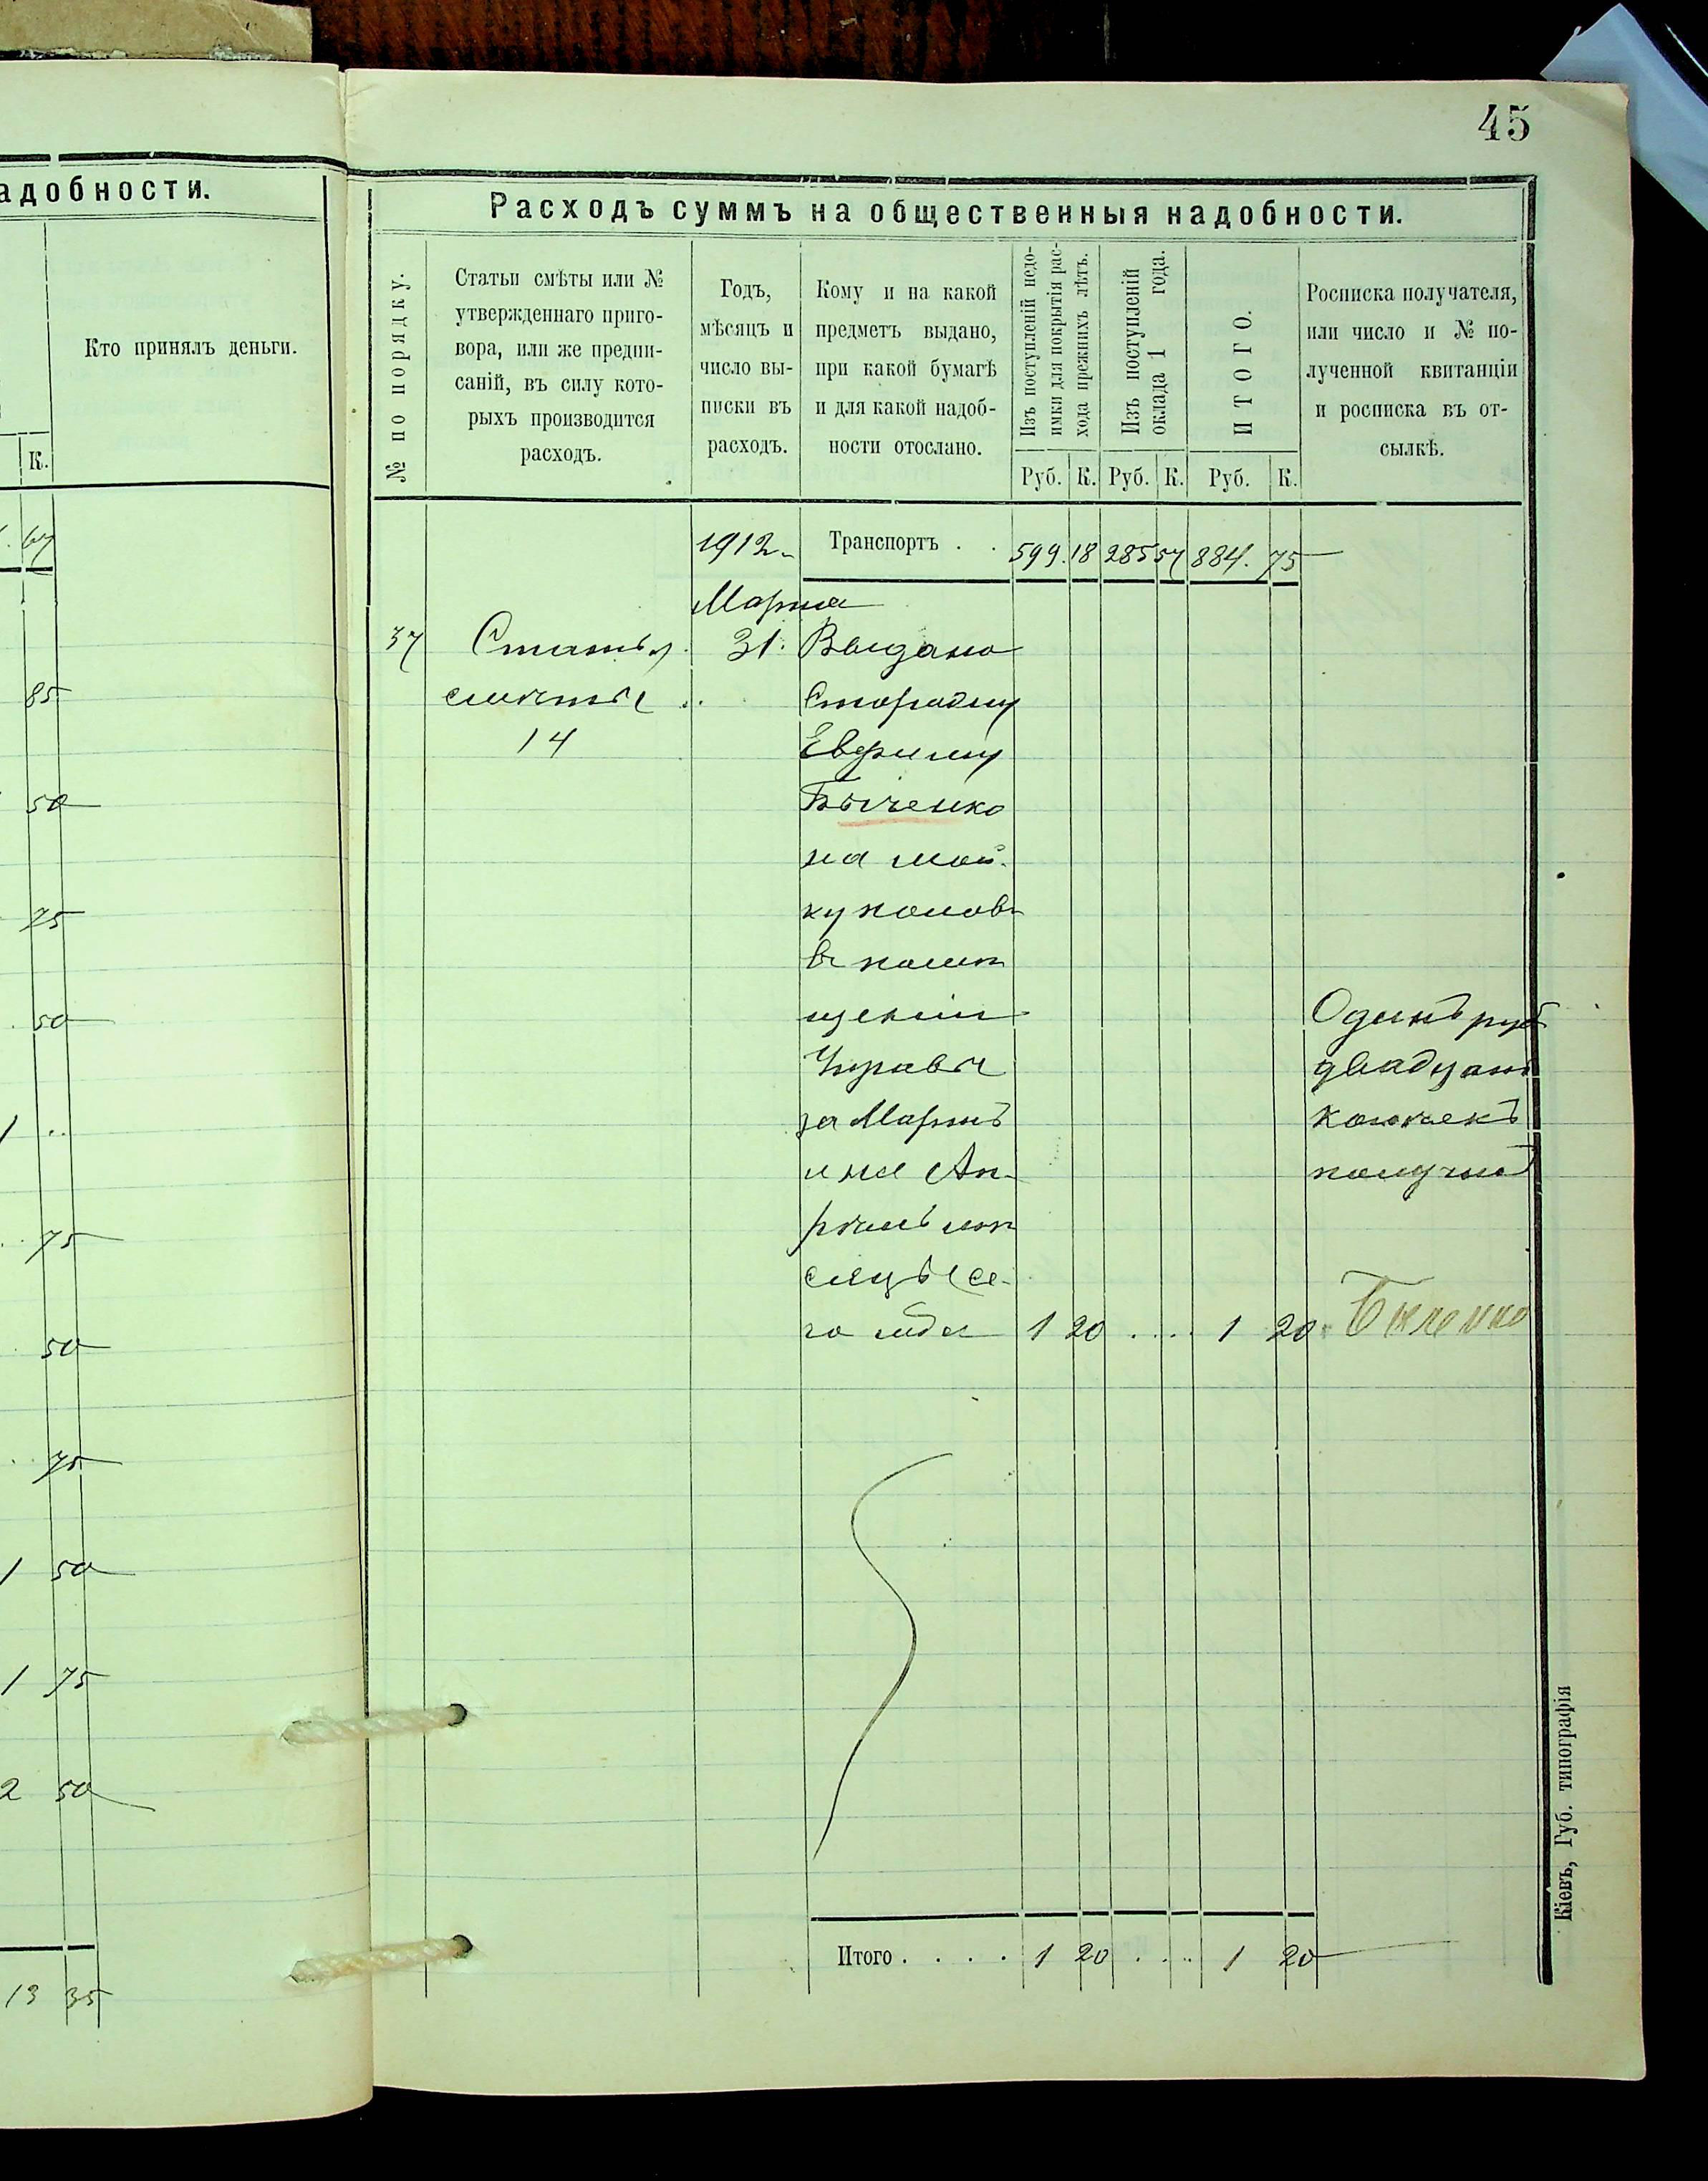 адобности.
К.
Кто принялъ деньги.
67
85
50
75
50
1 ..
75
50
75
1 50
1 75
2 50
13 35
45
Расходъ суммъ на общественныя надобности.
№ по порядку.
Статьи смѣты или №
утвержденнаго приго-
вора, или же предпи-
саній, въ силу кото-
рыхъ производится
расходъ.
Годъ,
мѣсяцъ и
число вы-
писки въ
расходъ.
Кому и на какой
предметъ выдано,
при какой бумагѣ
и для какой надоб-
ности отослано.
Изъ поступленій недо-
имки для покрытія рас-
хода прежнихъ лѣтъ.
Изъ поступленій
оклада 1 года.
ИТОГО.
Росписка получателя,
или число и № по-
лученной квитанціи
и росписка въ от-
сылкѣ.
Руб. К. Руб. К. Руб. К.
1912. Транспортъ . . 599. 18 285 57 884. 75
Марта
37 Статья 31. Выдано
смѣты Сторожу
14 Ефиму
Быченко
на мой-
ку половъ
въ помѣ
щеніи
Управы
за Мартъ
и на Ап-
рѣль мѣ
сяцы се-
го года 1 20 .... 1 20
Одинъ руб
двадцать
копѣекъ
получилъ
Биченко
Итого . . . . 1 20 .... 1 20
Кіевъ, Губ. типографія